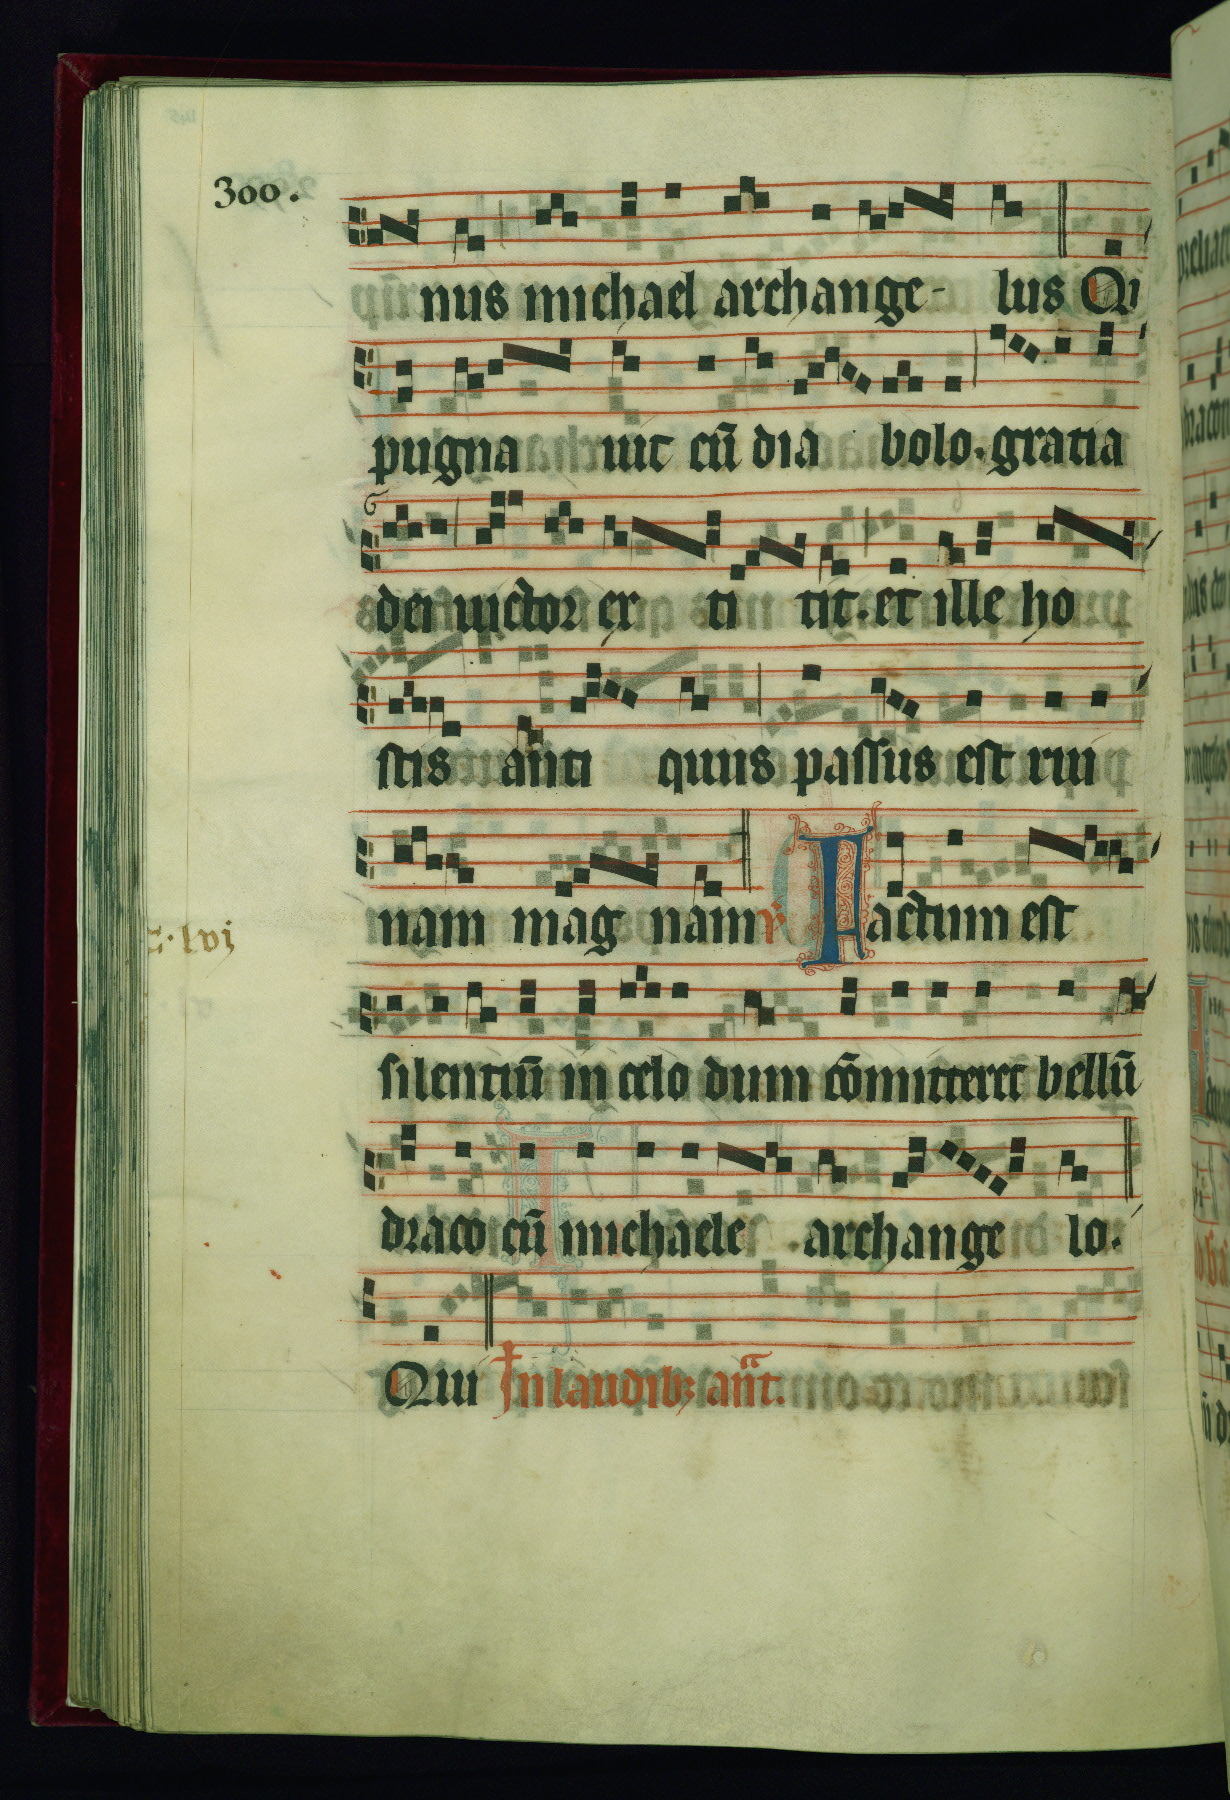 300.
nus michael archange- lus Qi
pugna uit cū dia bolo. gratia
dei uictor ex ti tit. et ille ho
stis anti quus passus est rui
nam mag nam ꝟ Factum est
C. lvi
silentiū in celo dum cōmitteret bellū
draco cū michaele archange lo.
Qui In laudibꝫ añt.